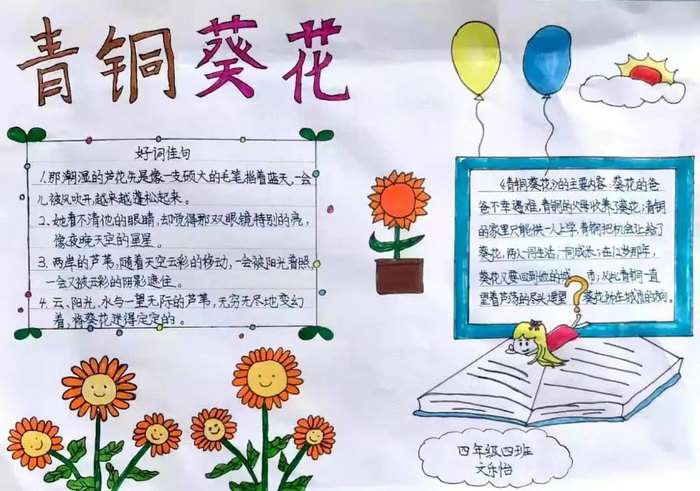 青铜葵花
好词佳句
1.那潮湿的芦花先是像一支硕大的毛笔描着蓝天,一会
儿被风吹开,越来越蓬松起来。
2.她看不清他的眼睛,却觉得那双眼睛特别的亮,
像夜晚天空的星星。
3.两岸的芦苇,随着天空云彩的移动,一会被阳光普照,
一会又被云彩的阴影遮住。
4.云、阳光,水与一望无际的芦苇,无穷无尽地变幻
着,将葵花迷得定定的。
《青铜葵花》的主要内容:葵花的爸
爸不幸遇难,青铜的父母收养了葵花;青铜
的家里只能供一人上学,青铜把机会让给了
葵花,两人一同生活,一同成长;在12岁那年,
葵花又要回到他的城市,从此青铜一直
望着芦荡的尽头遥望葵花所在城市的方向
四年级四班
文乐怡